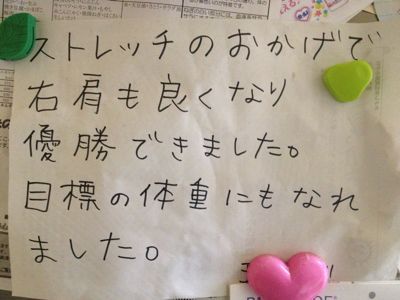 ストレッチのおかげで
右肩も良くなり
優勝できました。
目標の体重にもなれ
ました。